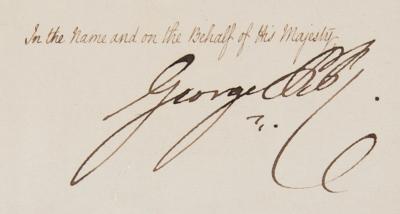 In the Name and on the Behalf of His Majesty
George P R